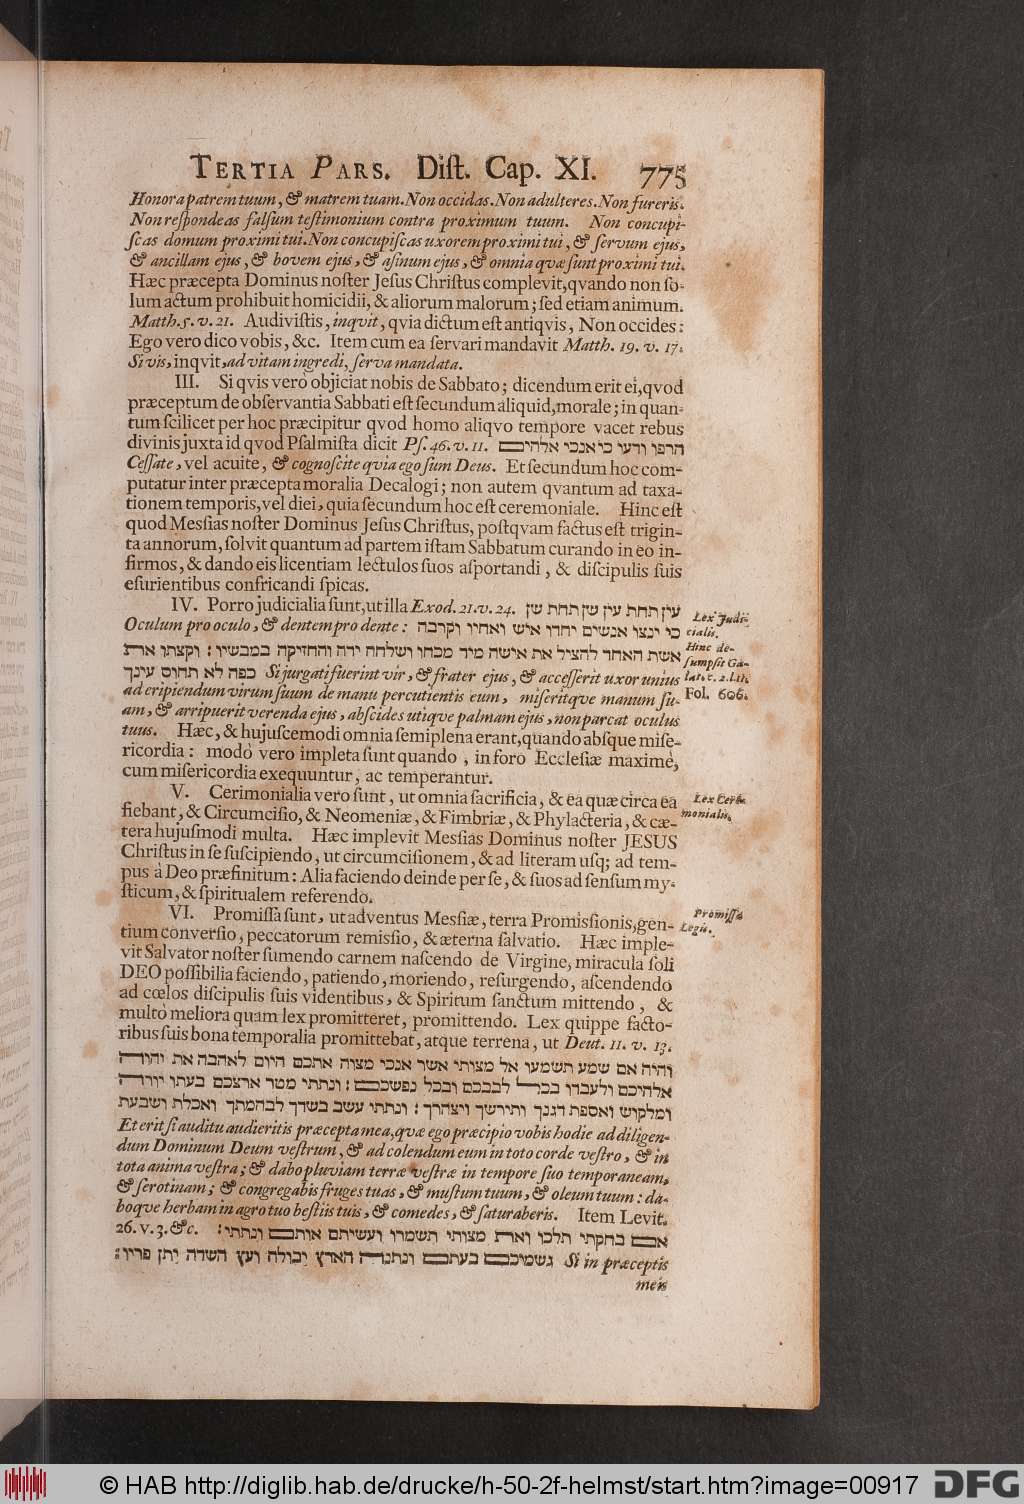 TERTIA PARS. Dist. Cap. XI. 775
Honora patrem tuum, & matrem tuam. Non occidas. Non adulteres. Non fureris.
Non respondeas falsum testimonium contra proximum tuum. Non concupi-
scas domum proximi tui. Non concupiscas uxorem proximi tui, & servum ejus,
& ancillam ejus, & bovem ejus, & asinum ejus, & omnia qvæ sunt proximi tui.
Hæc præcepta Dominus noster Jesus Christus complevit, qvando non so-
lum actum prohibuit homicidii, & aliorum malorum; sed etiam animum.
Matth. 5. v. 21. Audivistis, inqvit, qvia dictum est antiqvis, Non occides:
Ego vero dico vobis, &c. Item cum ea servari mandavit Matth. 19. v. 17.
Si vis, inqvit, ad vitam ingredi, serva mandata.
III. Si qvis verò objiciat nobis de Sabbato; dicendum erit ei, qvod
præceptum de observantia Sabbati est secundum aliquid, morale; in quan-
tum scilicet per hoc præcipitur qvod homo aliqvo tempore vacet rebus
divinis juxta id qvod Psalmista dicit Ps. 46. v. 11. הרפו ודעו כי אנכי אלהים
Cessate, vel acuite, & cognoscite qvia ego sum Deus. Et secundum hoc com-
putatur inter præcepta moralia Decalogi; non autem qvantum ad taxa-
tionem temporis, vel diei, quia secundum hoc est ceremoniale. Hinc est
quod Messias noster Dominus Jesus Christus, postqvam factus est trigin-
ta annorum, solvit quantum ad partem istam Sabbatum curando in eo in-
firmos, & dando eis licentiam lectulos suos asportandi, & discipulis suis
esurientibus confricandi spicas.
IV. Porro judicialia sunt, ut illa Exod. 21. v. 24. עין תחת עין שן תחת שן
Oculum pro oculo, & dentem pro dente: כי ינצו אנשים יחדו איש ואחיו וקרבה
אשת האחד להציל את אישה מיד מכהו ושלחה ידה והחזיקה במבשיו: וקצתו את
כפה לא תחוס עינך Si jurgati fuerint vir, & frater ejus, & accesserit uxor unius
ad eripiendum virum suum de manu percutientis eum, miseritqve manum su-
am, & arripuerit verenda ejus, abscides utiqve palmam ejus, non parcat oculus
tuus. Hæc, & hujuscemodi omnia semiplena erant, quando absque mise-
ricordia: modò vero impleta sunt quando, in foro Ecclesiæ maximè,
cum misericordia exequuntur, ac temperantur.
Lex Judi-
cialis.
Hinc de-
sumpsit Ga-
lat. c. 2. l. 11.
Fol. 606.
V. Cerimonialia vero sunt, ut omnia sacrificia, & ea quæ circa ea
fiebant, & Circumcisio, & Neomeniæ, & Fimbriæ, & Phylacteria, & cæ-
tera hujusmodi multa. Hæc implevit Messias Dominus noster JESUS
Christus in se suscipiendo, ut circumcisionem, & ad literam usq; ad tem-
pus à Deo præfinitum: Alia faciendo deinde per se, & suos ad sensum my-
sticum, & spiritualem referendo.
Lex Ceri-
monialis.
VI. Promissa sunt, ut adventus Messiæ, terra Promissionis, gen-
tium conversio, peccatorum remissio, & æterna salvatio. Hæc imple-
vit Salvator noster sumendo carnem nascendo de Virgine, miracula soli
DEO possibilia faciendo, patiendo, moriendo, resurgendo, ascendendo
ad cœlos discipulis suis videntibus, & Spiritum sanctum mittendo, &
multò meliora quam lex promitteret, promittendo. Lex quippe facto-
ribus suis bona temporalia promittebat, atque terrena, ut Deut. 11. v. 13.
Promissa
Legis.
והיה אם שמע תשמעו אל מצותי אשר אנכי מצוה אתכם היום לאהבה את יהוה
אלהיכם ולעבדו בכל לבבכם ובכל נפשכם: ונתתי מטר ארצכם בעתו יורה
ומלקוש ואספת דגנך ותירשך ויצהרך: ונתתי עשב בשדך לבהמתך ואכלת ושבעת
Et erit si auditu audieritis præcepta mea, qvæ ego præcipio vobis hodie ad diligen-
dum Dominum Deum vestrum, & ad colendum eum in toto corde vestro, & in
tota anima vestra; & dabo pluviam terræ vestræ in tempore suo temporaneam,
& serotinam; & congregabis fruges tuas, & mustum tuum, & oleum tuum: da-
boqve herbam in agro tuo bestiis tuis, & comedes, & saturaberis. Item Levit.
26. v. 3. &c. אם בחקתי תלכו ואת מצותי תשמרו ועשיתם אותם ונתתי:
גשמיכם בעתם ונתנה הארץ יבולה ועץ השדה יתן פריו: Si in præceptis
meis
© HAB http://diglib.hab.de/drucke/h-50-2f-helmst/start.htm?image=00917 DFG